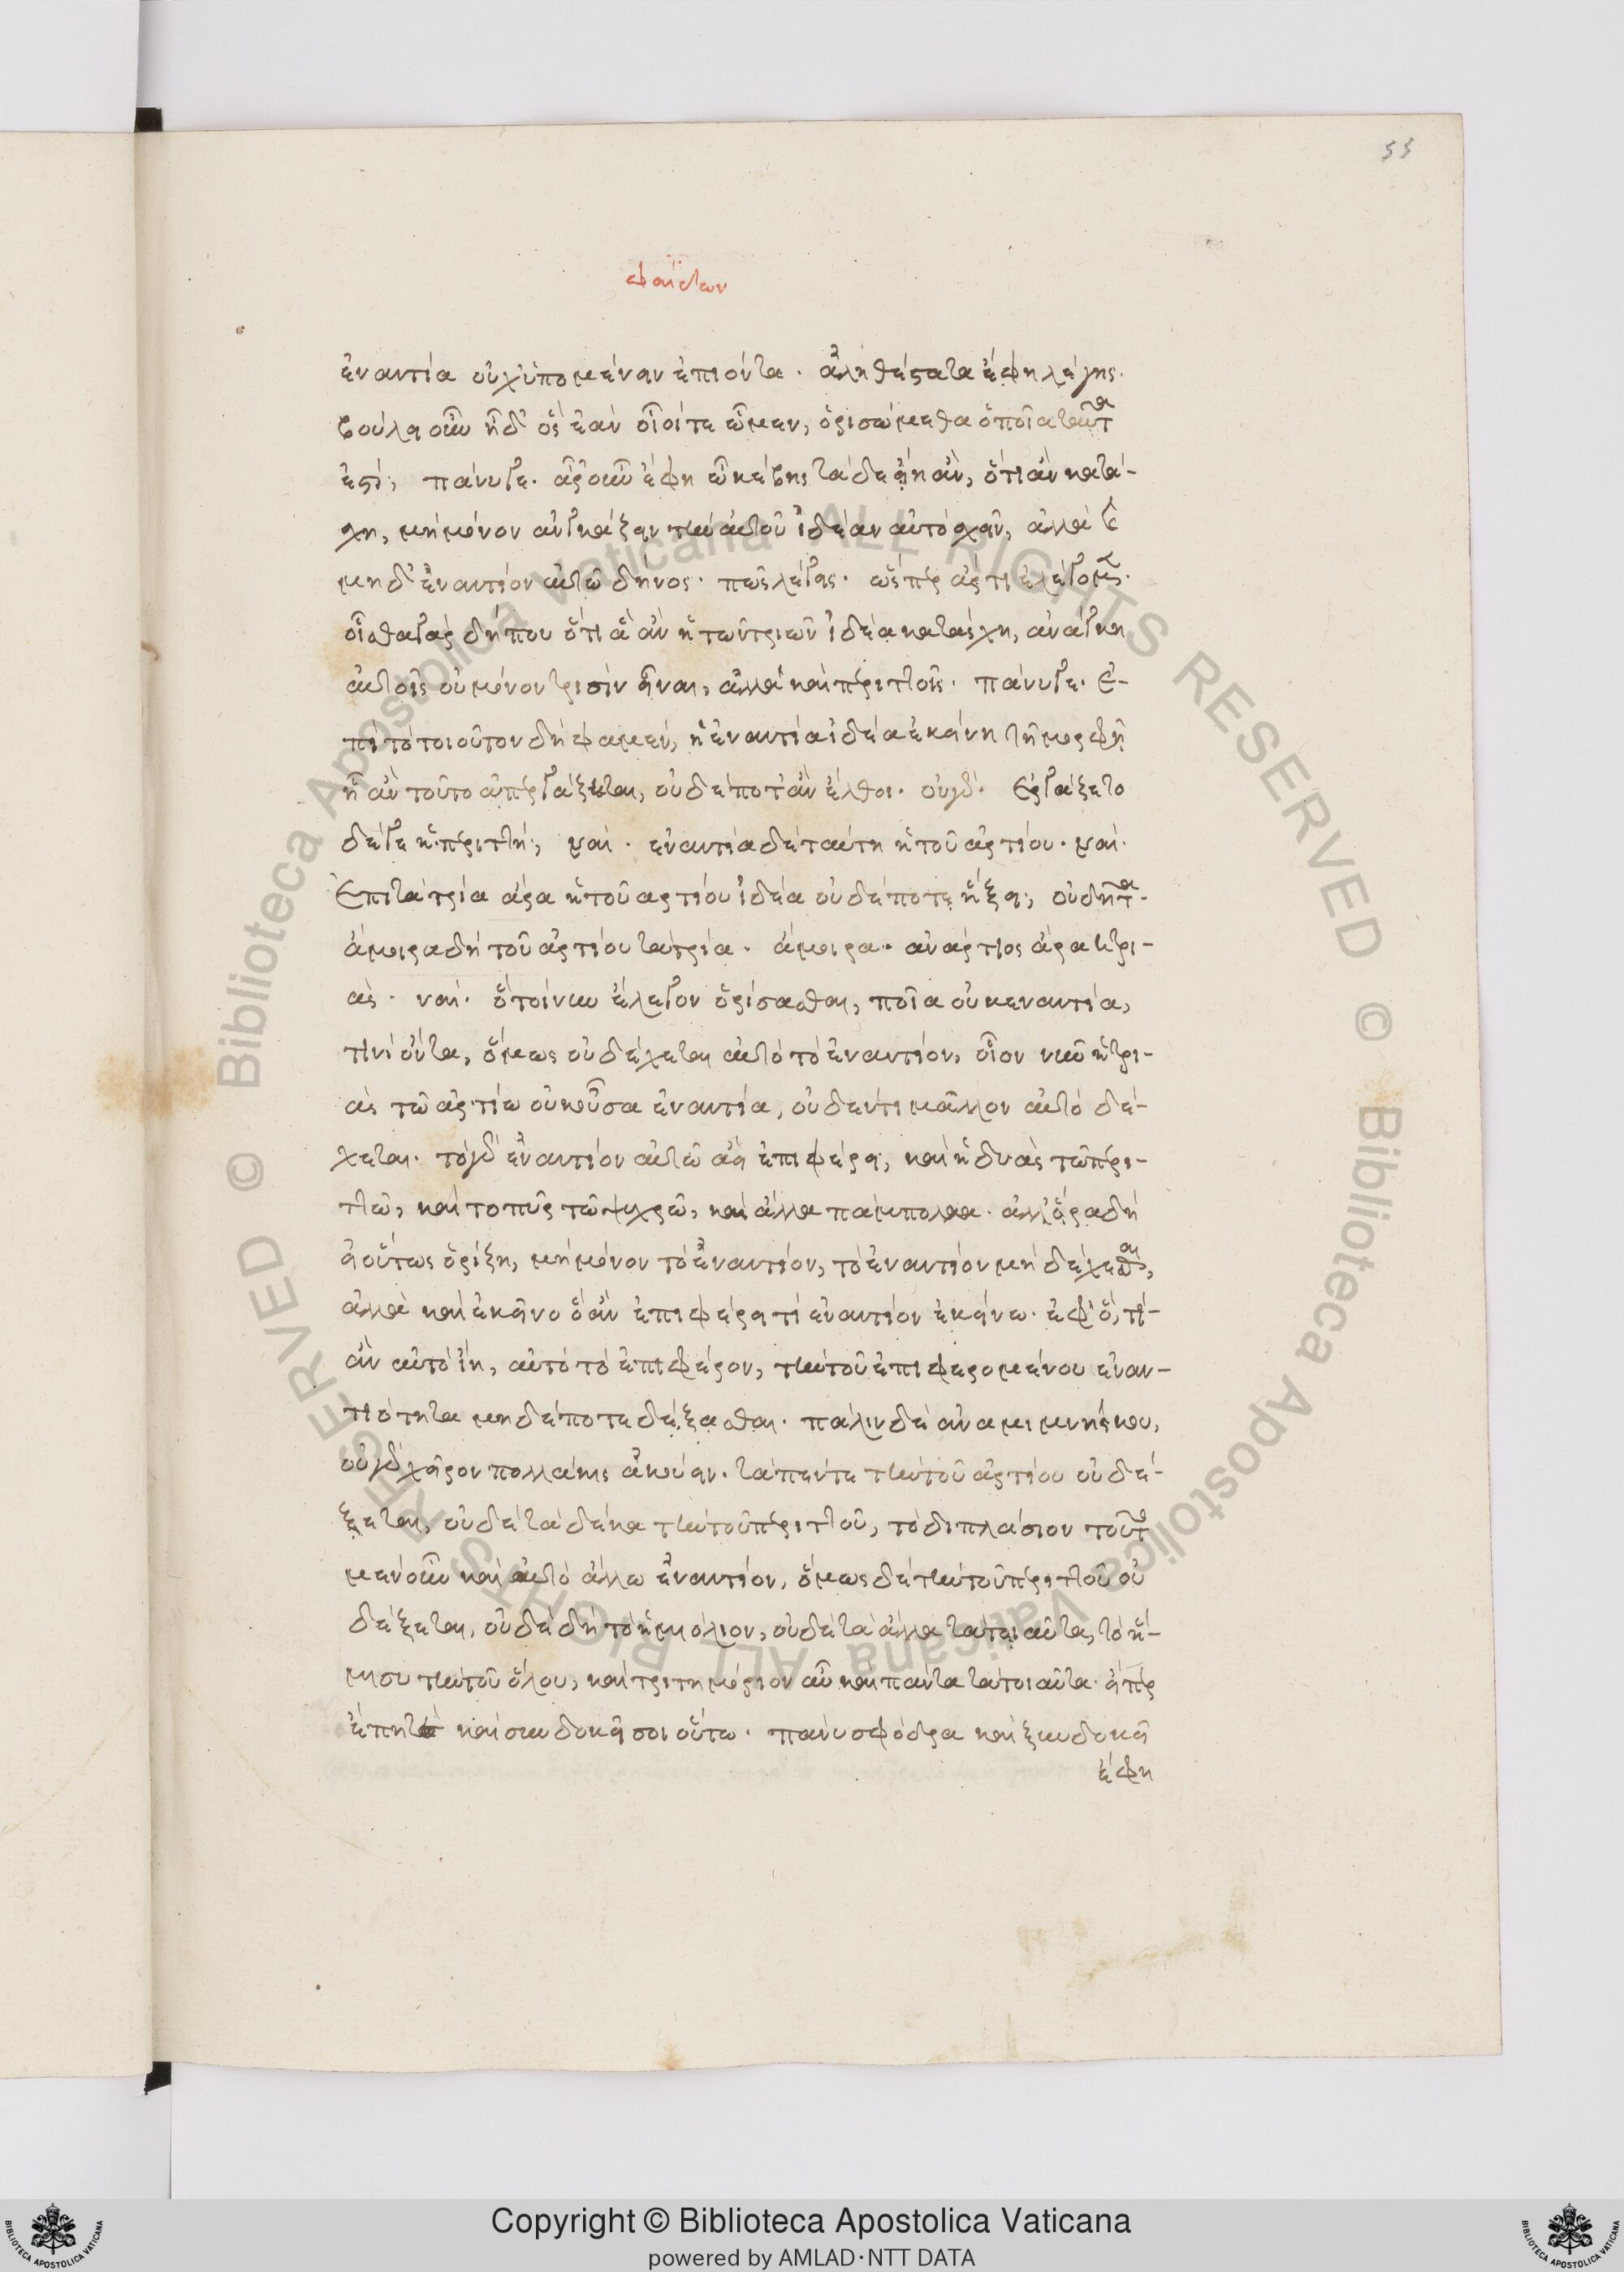 55
φαίδων
ἐναντία οὐχ ὑπομένειν ἐπιόντα. ἀληθέστατα ἔφη λέγεις.
βούλει οὖν ἦ δ' ὃς ἐὰν οἷοί τε ὦμεν, ὁρισώμεθα ὁποῖα ταῦτα
ἐστί; πάνυ γε. ἆρ' οὖν ἔφη ὦ κέβης τάδε εἴη ἂν, ὅτι ἂν κατά-
σχη, μὴ μόνον ἀναγκάζειν τὴν αὐτοῦ ἰδέαν αὐτὸ σχεῖν, ἀλλὰ καὶ
μηδ' ἐναντίον αὐτῶ δή τινος. πῶς λέγεις. ὥσπερ ἄρτι ἐλέγομεν.
οἶσθα γὰρ δήπου ὅτι ἃ ἂν ἡ τῶν τριῶν ἰδέα κατάσχη, ἀνάγκη
αὐτοῖς οὐ μόνον τρισὶν εἶναι, ἀλλὰ καὶ περιττοῖς. πάνυ γε. ἐ-
πὶ τὸ τοιοῦτον δή φαμεν, ἡ ἐναντία ἰδέα ἐκείνη τῇ μορφῇ
ἣ ἂν τοῦτο ἀπεργάζηται, οὐδέποτ' ἂν ἔλθοι. οὐ γάρ. Εἰργάζετο
δέ γε ἡ περιττή; ναί. ἐναντία δὲ ταύτη ἡ τοῦ ἀρτίου. ναί.
Ἐπὶ τὰ τρία ἄρα ἡ τοῦ ἀρτίου ἰδέα οὐδέποτε ἥξει; οὐ δῆτα.
ἄμοιρα δὴ τοῦ ἀρτίου τὰ τρία. ἄμοιρα. ἀνάρτιος ἄρα ἡ τρι-
άς. ναί. ὃ τοίνυν ἔλεγον ὁρίσασθαι, ποῖα οὐκ ἐναντία,
τινὶ ὄντα, ὅμως οὐ δέχεται αὐτὸ τὸ ἐναντίον, οἷον νῦν ἡ τρι-
ὰς τῶ ἀρτίω οὐκ οὖσα ἐναντία, οὐδέν τι μᾶλλον αὐτὸ δέ-
χεται. τὸ γὰρ ἐναντίον αὐτῶ ἀεὶ ἐπιφέρει, καὶ ἡ δυὰς τῶ περι-
ττῶ, καὶ τὸ πῦρ τῶ ψυχρῶ, καὶ ἄλλα πάμπολλα. ἀλλ' ὅρα δὴ
εἰ οὕτως ὁρίζη, μὴ μόνον τὸ ἐναντίον, τὸ ἐναντίον μὴ δέχεσθαι,
ἀλλὰ καὶ ἐκεῖνο ὃ ἂν ἐπιφέρει τι ἐναντίον ἐκείνω. ἐφ' ὅ, τι-
ἂν αὐτὸ ἴη, αὐτὸ τὸ ἐπιφέρον, τὴν τοῦ ἐπιφερομένου ἐναν-
τιότητα μηδέποτε δέξασθαι. πάλιν δὲ ἀναμιμνήσκου,
οὐ γὰρ χεῖρον πολλάκις ἀκούειν. τὰ πέντε τὴν τοῦ ἀρτίου οὐ δέ-
ξεται, οὐδὲ τὰ δέκα τὴν τοῦ περιττοῦ, τὸ διπλάσιον τοῦτο
μὲν οὖν καὶ αὐτὸ ἄλλω ἐναντίον, ὅμως δὲ τὴν τοῦ περιττοῦ οὐ
δέξεται, οὐδὲ δὴ τὸ ἡμιόλιον, οὐδὲ τὰ ἄλλα τὰ τοιαῦτα, τὸ ἥ-
μισυ τὴν τοῦ ὅλου, καὶ τριτημόριον αὖ καὶ πάντα τὰ τοιαῦτα. εἴπερ
ἕπη τε καὶ συνδοκεῖ σοι οὕτω. πάνυ σφόδρα καὶ ξυνδοκεῖ
ἔφη
Copyright © Biblioteca Apostolica Vaticana
powered by AMLAD·NTT DATA